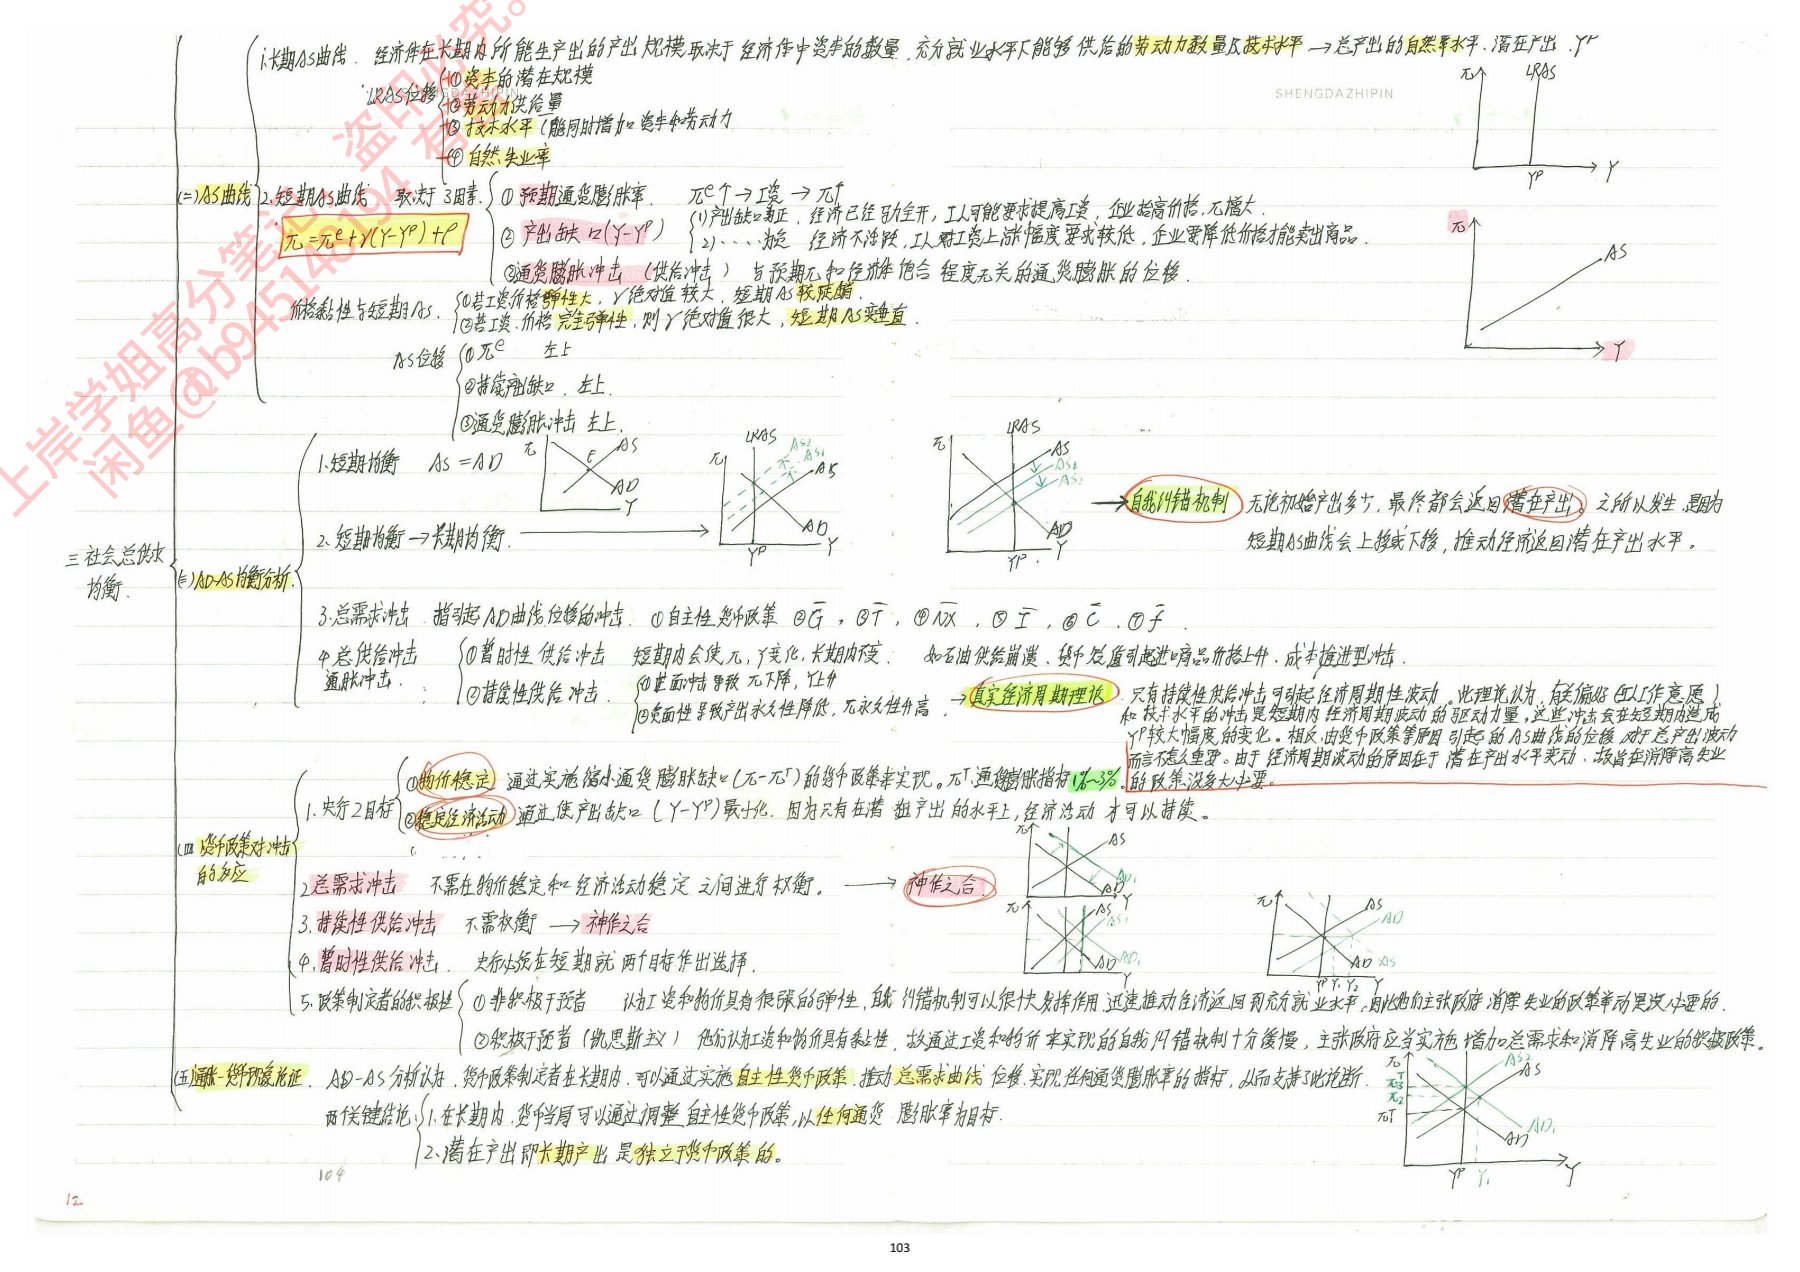 1.长期AS曲线. 经济体在长期内所能生产出的产出规模取决于经济体中资本的数量.充分就业水平下能够供给的劳动力数量及技术水平→总产出的自然率水平.潜在产出.Yᴾ
LRAS位移
①资本的潜在规模
②劳动力供给量
③技术水平(能同时增加资本和劳动力
④自然失业率
SHENGDAZHIPIN
π LRAS Yᴾ Y
(二)AS曲线
2.短期AS曲线 取决于3因素.
π=πᵉ+γ(Y-Yᴾ)+ρ
①预期通货膨胀率. πᵉ↑→工资→π↑
②产出缺口(Y-Yᴾ)
(1)产出缺口为正,经济已经马力全开,工人可能要求提高工资,企业抬高价格,π增大.
(2)....为负 经济不活跃,工人对工资上涨幅度要求较低,企业要降低价格才能卖出商品.
③通货膨胀冲击(供给冲击)与预期π和经济体饱合程度无关的通货膨胀的位移.
π AS Y
价格黏性与短期AS.
①若工资价格弹性大,γ绝对值较大,短期AS较陡峭.
②若工资.价格完全弹性,则γ绝对值很大,短期AS变垂直.
AS位移
①πᵉ 左上
②持续产出缺口.左上.
③通货膨胀冲击 左上.
三社会总供求均衡.
(三)AD-AS均衡分析.
1.短期均衡 AS=AD
π AS E AD Y
2.短期均衡→长期均衡.
π LRAS AS₂ AS₁ AS AD Yᴾ Y
π LRAS AS AS₁ AS₂ AD Yᴾ Y
→自我纠错机制 无论初始产出多少,最终都会返回潜在产出.之所以发生,是因为
短期AS曲线会上移或下移,推动经济返回潜在产出水平.
3.总需求冲击 指引起AD曲线位移的冲击. ①自主性货币政策 ②G̅, ③T̅, ④N̅X̅, ⑤I̅, ⑥C̅, ⑦f̅.
4.总供给冲击
通胀冲击.
①暂时性供给冲击 短期内会使π,Y变化,长期内不变. 如石油供给崩溃、货币贬值引起进口商品价格上升.成本推进型冲击.
②持续性供给冲击.
①正面冲击导致π下降,Y上升
②负面性导致产出永久性降低,π永久性升高.
→真实经济周期理论 只有持续性供给冲击可引起经济周期性波动.此理论认为,有关偏好(工人工作意愿)
和技术水平的冲击是短期内经济周期波动的驱动力量.这些冲击会在短期内造成
Yᴾ较大幅度的变化.相反,由货币政策等原因引起的AS曲线的位移对于总产出波动
而言不怎么重要.由于经济周期波动的原因在于潜在产出水平变动,故旨在消除高失业
的政策没多大必要.
(四)货币政策对冲击的多应
1.央行2目标
①物价稳定 通过实施缩小通货膨胀缺口(π-πᵀ)的货币政策来实现.πᵀ通货膨胀指标1%~3%.
②稳定经济活动 通过使产出缺口(Y-Yᴾ)最小化.因为只有在潜在产出的水平上,经济活动才可以持续.
2.总需求冲击 不需在物价稳定和经济活动稳定之间进行权衡.→神作之合
3.持续性供给冲击 不需权衡→神作之合
4.暂时性供给冲击. 央行必须在短期就两个目标作出选择.
π AS AD₁ AD Y
π AS AS₁ AD AD₁ Y
π AS AD AD AS Yᴾ Y₁ Y₂ Y
5.政策制定者的积极性
①非积极干预者 认为工资和物价具有很强的弹性,自我纠错机制可以很快发挥作用.迅速推动经济返回到充分就业水平.因此他们主张政府消除失业的政策举动是没必要的.
②积极干预者(凯恩斯主义)他们认为工资和物价具有黏性,故通过工资和物价来实现的自我纠错机制十分缓慢,主张政府应当实施增加总需求和消除高失业的积极政策.
(五)通胀-货币政策论证. AD-AS分析认为,货币政策制定者在长期内,可以通过实施自主性货币政策,推动总需求曲线位移,实现任何通货膨胀率的指标,从而支持了此论断.
两个关键结论:
1.在长期内,货币当局可以通过调整自主性货币政策,以任何通货膨胀率为目标.
2.潜在产出即长期产出是独立于货币政策的.
π AS₂ AS π₂ πᵀ AD₁ AD Yᴾ Y₁ Y
104
12
103
上岸学姐高分笔记,盗印必究。
闲鱼@b945148194